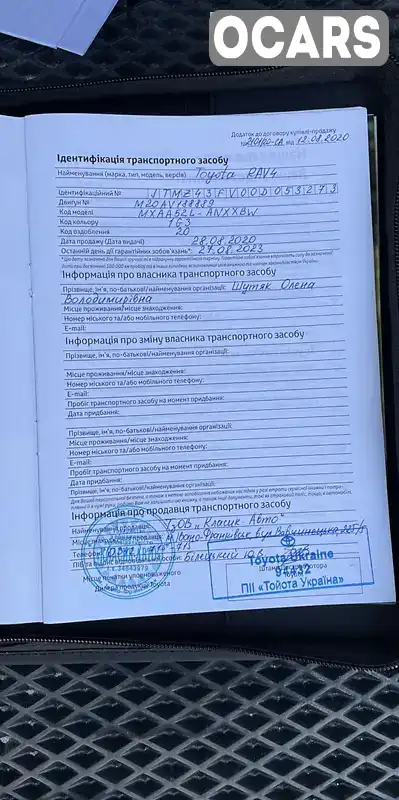 OCARS
Додаток до договору купівлі-продажу
від 12.08.2020
Ідентифікація транспортного засобу
Найменування (марка, тип, модель, версія) Toyota RAV4
Ідентифікаційний № JTMZ43FV00D053273
Двигун № M20AV138889
Код моделі MXAA52L-ANXXBW
Код кольору 1G3
Код оздоблення 20
Дата продажу (Дата видачі) 28.08.2020
Останній день дії гарантійних зобов'язань* 27.08.2023
Інформація про власника транспортного засобу
Прізвище, ім'я, по-батькові/найменування організації: Шутяк Олена
Володимирівна
Місце проживання/місце знаходження:
Номер міського та/або мобільного телефону:
E-mail:
Інформація про зміну власника транспортного засобу
Прізвище, ім'я, по-батькові/найменування організації:
Місце проживання/місце знаходження:
Номер міського та/або мобільного телефону:
E-mail:
Пробіг транспортного засобу на момент придбання:
Дата придбання:
Прізвище, ім'я, по-батькові/найменування організації:
Місце проживання/місце знаходження:
Номер міського та/або мобільного телефону:
E-mail:
Пробіг транспортного засобу на момент придбання:
Дата придбання:
Прізвище, ім'я, по-батькові/найменування організації:
Інформація про продавця транспортного засобу
Найменування продавця: ТзОВ "Класик Авто"
м. Івано-Франківськ, вул.
Телефон
Місце печатки уповноваженого
Дилера продукції Toyota
Toyota Ukraine
94332
ПІІ «Тойота Україна»